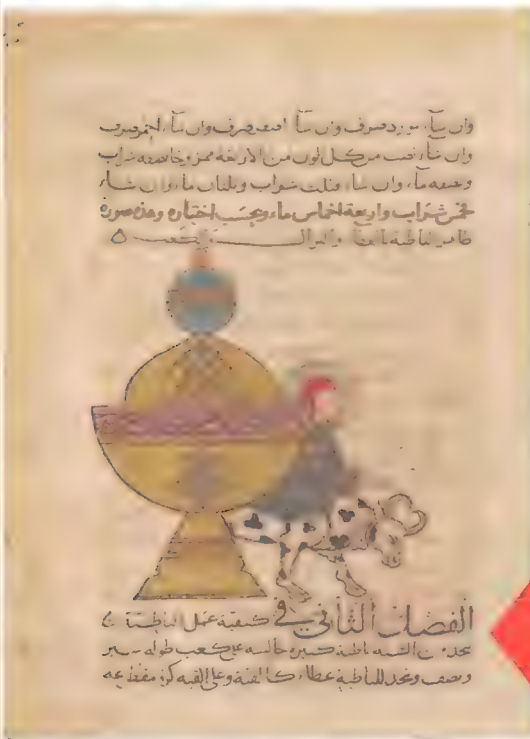 وان شآ مورد صرف وان شآ اصفر صرف وان شآ احمر صرف
وان شآء نصب من كل لون من الاربعة ممزوجا نصفه شراب
ونصفه مآء وان شآء فثلث شراب وثلثان مآء وان شآء
فخمس شراب واربعة اخماس مآء وبحسب اختياره وهذه صورة
ظاهر الباطية
الفصل الثاني في كيفية عمل الباطية
يتخذ من الشبه باطية كبيرة جالسة على كعب طوله شبر
ونصف ويتخذ للباطية غطاء كالقبة وعلى القبة كرة